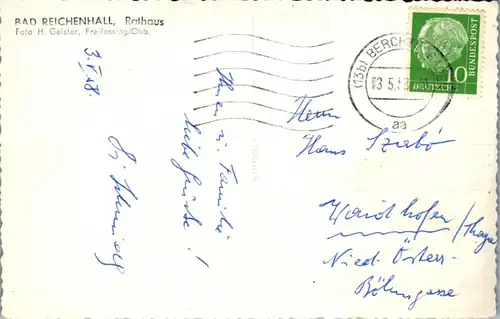 BAD REICHENHALL, Rathaus
Foto H. Geistör, Freilassing/Obb.
3.V.58.
Ihnen u. Familie
liebe Grüsse!
(13b) BERCHTESGADEN
3.5.58
aa
DEUTSCHE BUNDESPOST
10
Herrn
Hans Szabó
Waidhofen/Thaya
Nied. Österr.
Böhmgasse